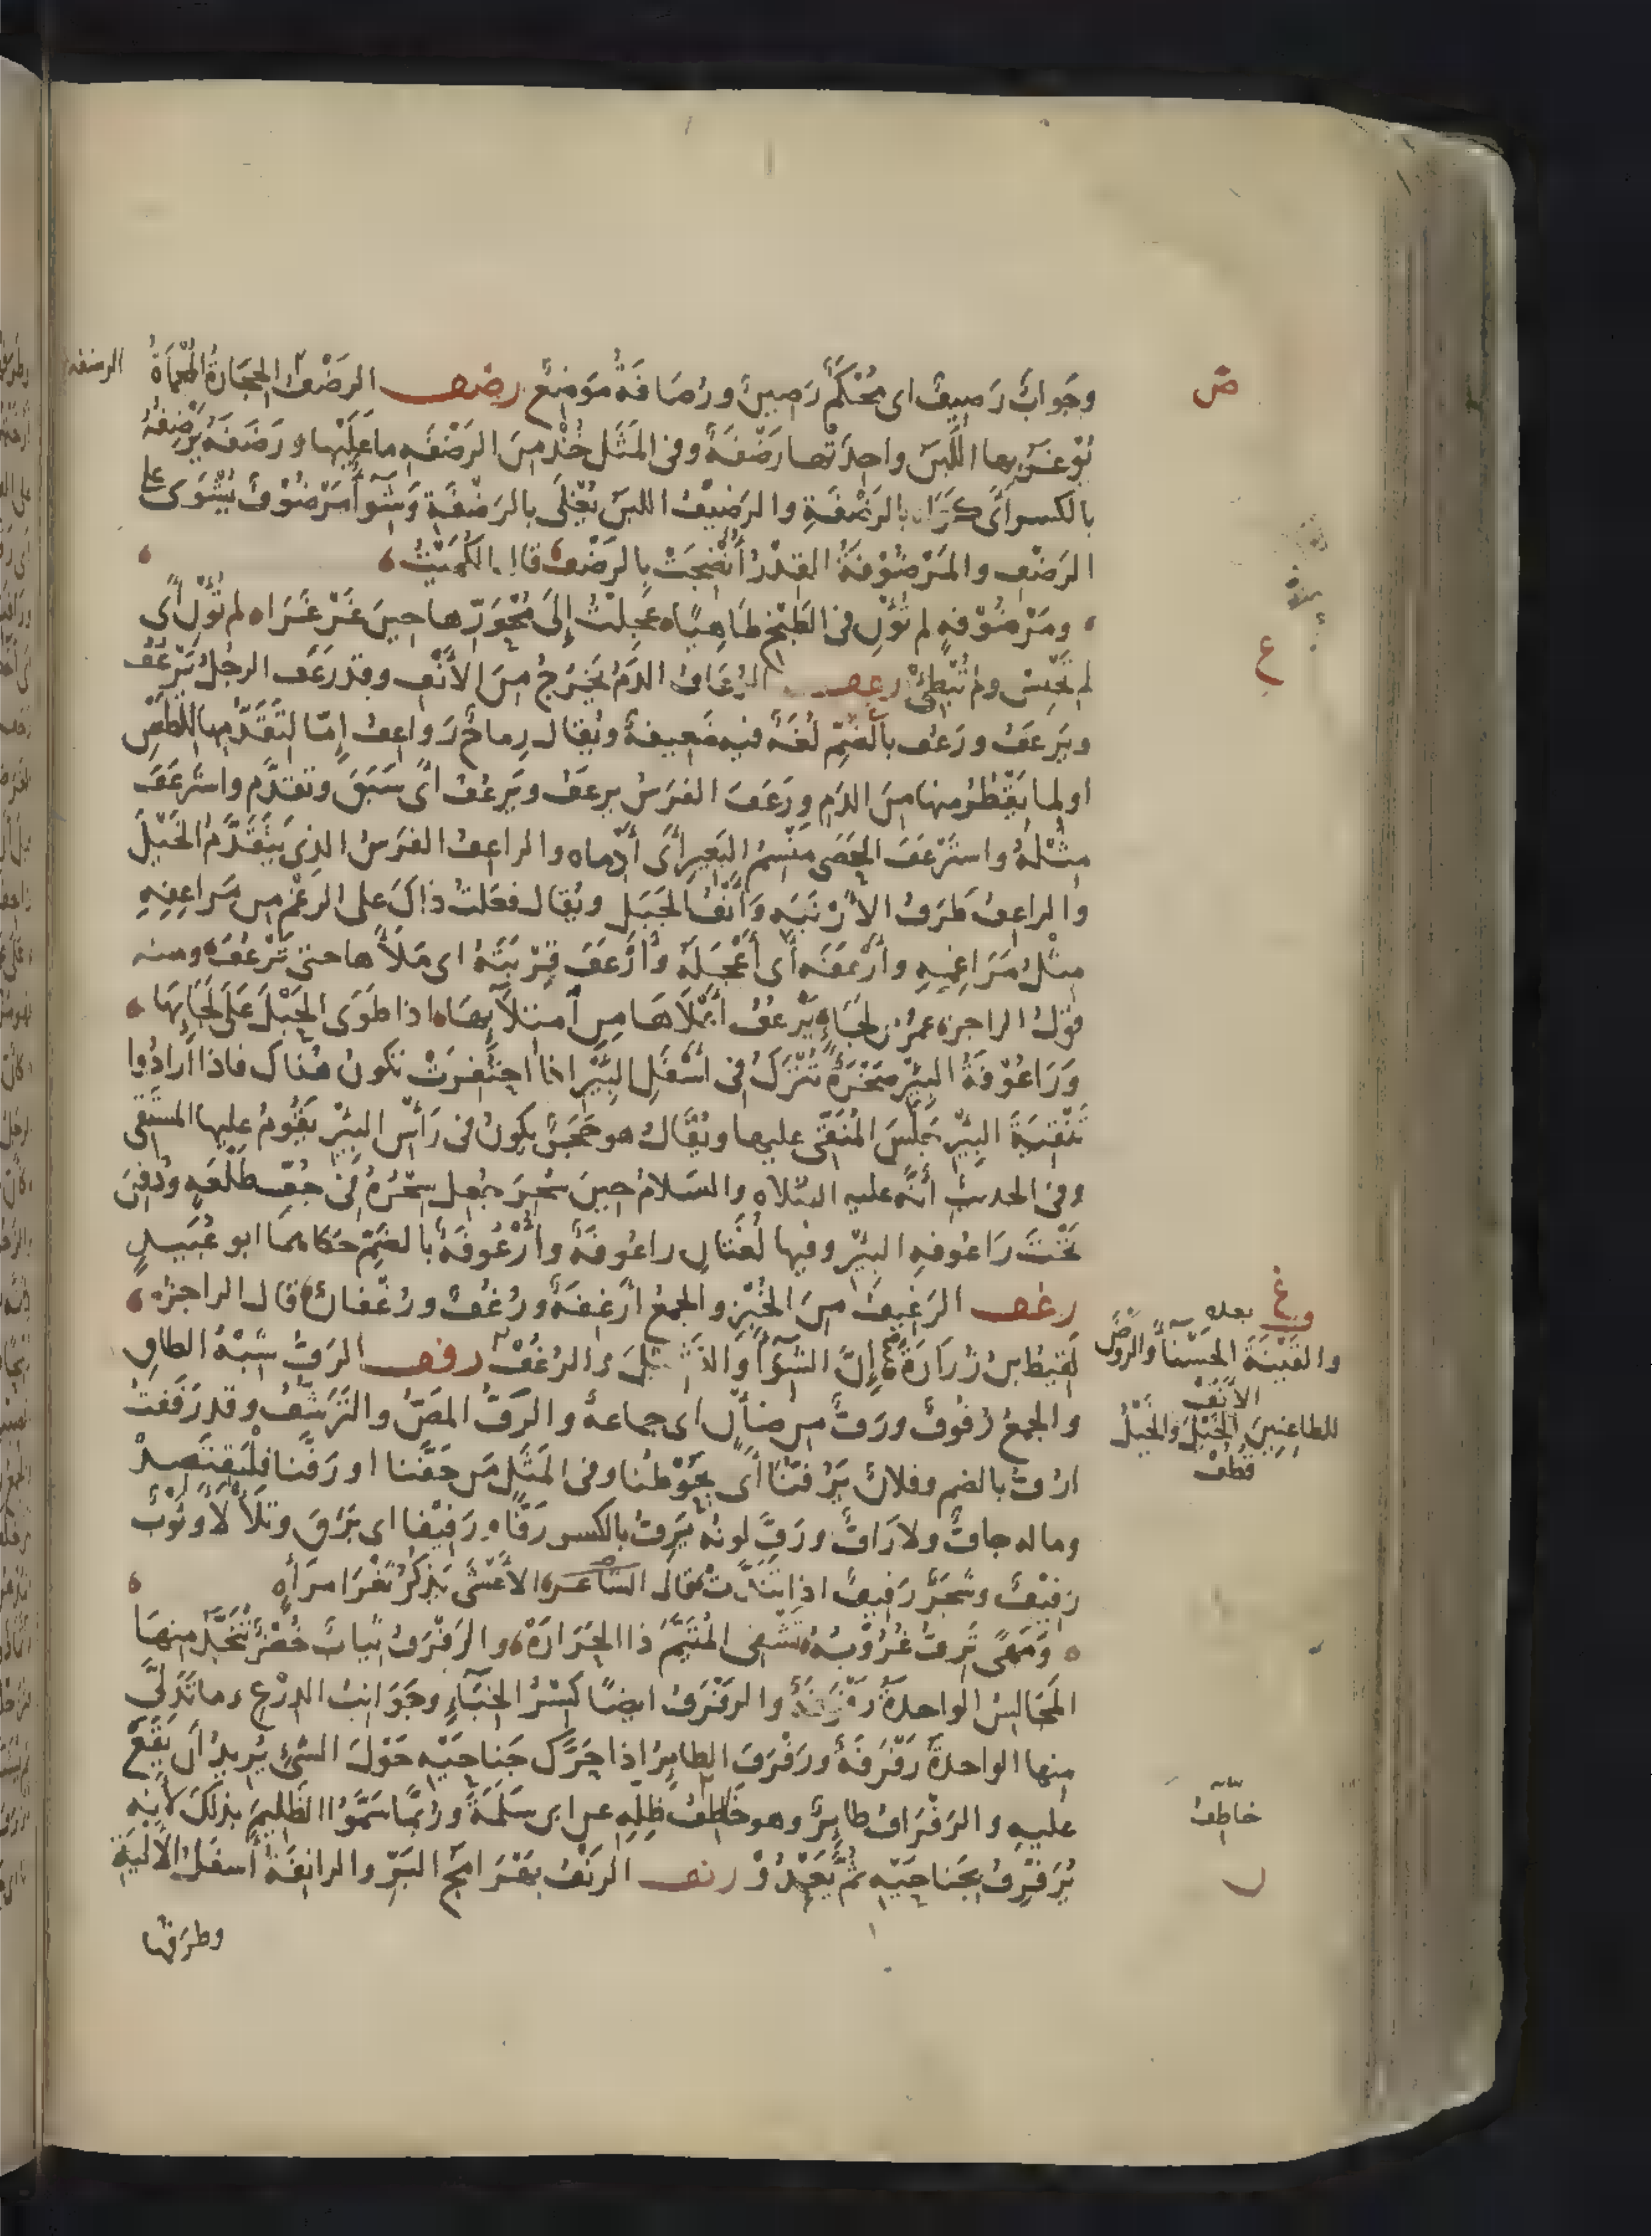 وجَوابٌ رَصِيفٌ اى مُحْكَمٌ رَصِينٌ ورُصَافَةُ مَوْضِعٌ رضف الرَضْفُ الحِجَارَةُ المُحْمَاةُ
يُوغَرُ بها اللَّبَنُ واحِدَتُها رَضْفَةٌ وفى المَثَل خُذْ مِنَ الرَضْفَةِ ما عَلَيْها ورَضَفَهُ يَرْضِفُهُ
بالكسر أى كَوَاه بالرَضْفَةِ والرَضِيْفُ اللبَنُ يُغْلَى بالرَضْفَةِ وشِوَآءٌ مَرْضُوْفٌ يُشْوَى على
الرَضْفِ والمَرْضُوْفَةُ القِدْرُ أُنْضِجَتْ بالرَضْفِ قال الكُمَيْتُ
ومَرْضُوْفَةٍ لم تُؤْنِ فى الطَبْخِ طَاهِيًا ه عَجِلْتُ إِلَى مُحْوَرِّها حِينَ غَرْغَرَا ه لم تُؤْنِ أى
لم تَحْبِسْ ولم تُبْطِئْ رعف الرُعَافُ الدَمُ يَخْرُجُ مِنَ الأنْفِ وقد رَعَفَ الرجُلُ يَرْعُفُ
ويَرعَفُ ورَعُف بالضَمِّ لُغَةٌ فيه ضَعِيفةٌ ويُقال رِماحٌ رَواعِفُ إِمّا لتَقَدُّمِها للطَعْنِ
او لما يَقْطُرُ منها مِنَ الدَمِ ورَعَفَ الفَرَسُ يرعَفُ ويَرعُفُ أى سَبَقَ وتقدَّم واسْتَرعَفَ
مِثْلُهُ واسْتَرْعَفَ الحَصَى مَنْسِمَ البَعِيرِ أى أدْماه والراعِفُ الفَرَسُ الذِى يَتَقَدَّمُ الخَيْلَ
والراعِفُ طَرَفُ الأرْنَبَةِ وأنْفُ الجَبَل ويُقال فعَلتُ ذاكَ على الرغْمِ من مَراعِفِهِ
مِثْلُ مَرَاغِمِهِ وأرْعَفَه أى أعْجَلَهُ وأرْعَفَ قِرْبَتَهُ اى مَلَأَها حتى تَرْعُفَ ومنه
قَوْلُ الراجز عمرُ بن لجَاءٍ يَرْعُفُ أعْلاَهَا مِنِ امتلآئِهَا اذا طَوَى الحَبْلَ عَلَى لَحَائِهَا
ورَاعُوْفَةُ البِئْرِ صَخْرَةٌ تُتْرَكُ فى أسْفَلِ البِئْرِ اذا احتُفِرَتْ تكونُ هُناك فاذا أرادُوا
تَنْقِيَةَ البِئْرِ جَلَسَ المُنَقِّى عليها ويُقالُ هو حَجَرٌ يكونُ فى رَأْسِ البِئْرِ يَقُومُ عليها المستَقِى
وفى الحديثِ أنَّه عليه الصّلاه والسَلامُ حِينَ سُحِرَ جُعِلَ سِحْرُهُ فى جُفِّ طَلْعَةٍ ودُفِنَ
تَحْتَ رَاعُوفةِ البِئْرِ وفيها لُغَتَانِ راعُوفَةٌ وأرْعُوفَةٌ بالضَمِّ حَكاهما ابو عُبَيدٍ
رغف الرَغِيفُ مِنَ الخُبْزِ والجمعُ أرْغِفَةٌ ورُغُفٌ ورُغْفانٌ قال الراجزُ
لَقِيطُ بنُ زُرَارَةَ إِنَّ الشِوَآءَ والنَشِيْلَ والرُغُفْ رفف الرَفُّ شِبْهُ الطاقِ
والجمعُ رُفُوفٌ ورَفٌّ من ضأنٍ اى جماعةٌ والرَفُّ المَصُّ والتَرَشُّفُ وقد رَفَفتُ
ارُفُّ بالضم وفلانٌ يَرُفُّنا أى يَحُوْطُنا وفى المَثَلِ مَن حَفَّنا او رَفَّنا فلْيَقتَصِدْ
وماله حافٌّ ولا رَافٌّ ورَفَّ لونُه يَرِفُّ بالكسر رَفًّا ورَفِيْفًا اى بَرَقَ وتلَأْلأَ وثَوْبٌ
رَفِيْفٌ وشَجَرٌ رَفِيفٌ اذا تَنَدَّتْ قال الشاعر الأعْشَى يَذكُرُ ثَغْرَ امرَأةٍ
ومَهًى تَرِفُّ غُرُوْبُهُ تَشْفِى المُتَيَّمَ ذا الحَرَارَةْ والرَفْرَفُ ثِيابٌ خُضْرٌ تُتَّخَذُ منها
المَحَابِسُ الواحدَةُ رَفْرَفَةٌ والرفْرَفُ ايضًا كِسْرُ الخِبَآءِ وجَوَانِبُ الدِرْعِ وما تَدَلَّى
منها الواحدةُ رَفْرَفَةٌ ورَفْرَفَ الطايِرُ اذا حَرَّك جَناحَيْهِ حَوْلَ الشئِ يُرِيدُ أن يَقَعَ
عليهِ والرَفْرَافُ طايرٌ وهو خَاطِفُ ظِلِّهِ عن ابى سَلَمَةَ ورُبَّما سَمَّوُا الظَلِيمَ بذلكَ لأنه
يُرَفْرِفُ بجَناحَيْهِ ثُمَّ يَعْدُوْ رنف الرَنْفُ بَهْرَامَجُ البَرِّ والرانِفَةُ أسفَلُ الأَلْيَةِ
وطرَفُها
الرضفه
ض
ع
وغ
بعده
والقَيْنَةَ الحَسْنآءَ والرَّوضَ
الأُنُفْ
للطاعِنِينَ الخَيْلَ والخَيْلُ
قُطُفْ
خاطِفُ
ن